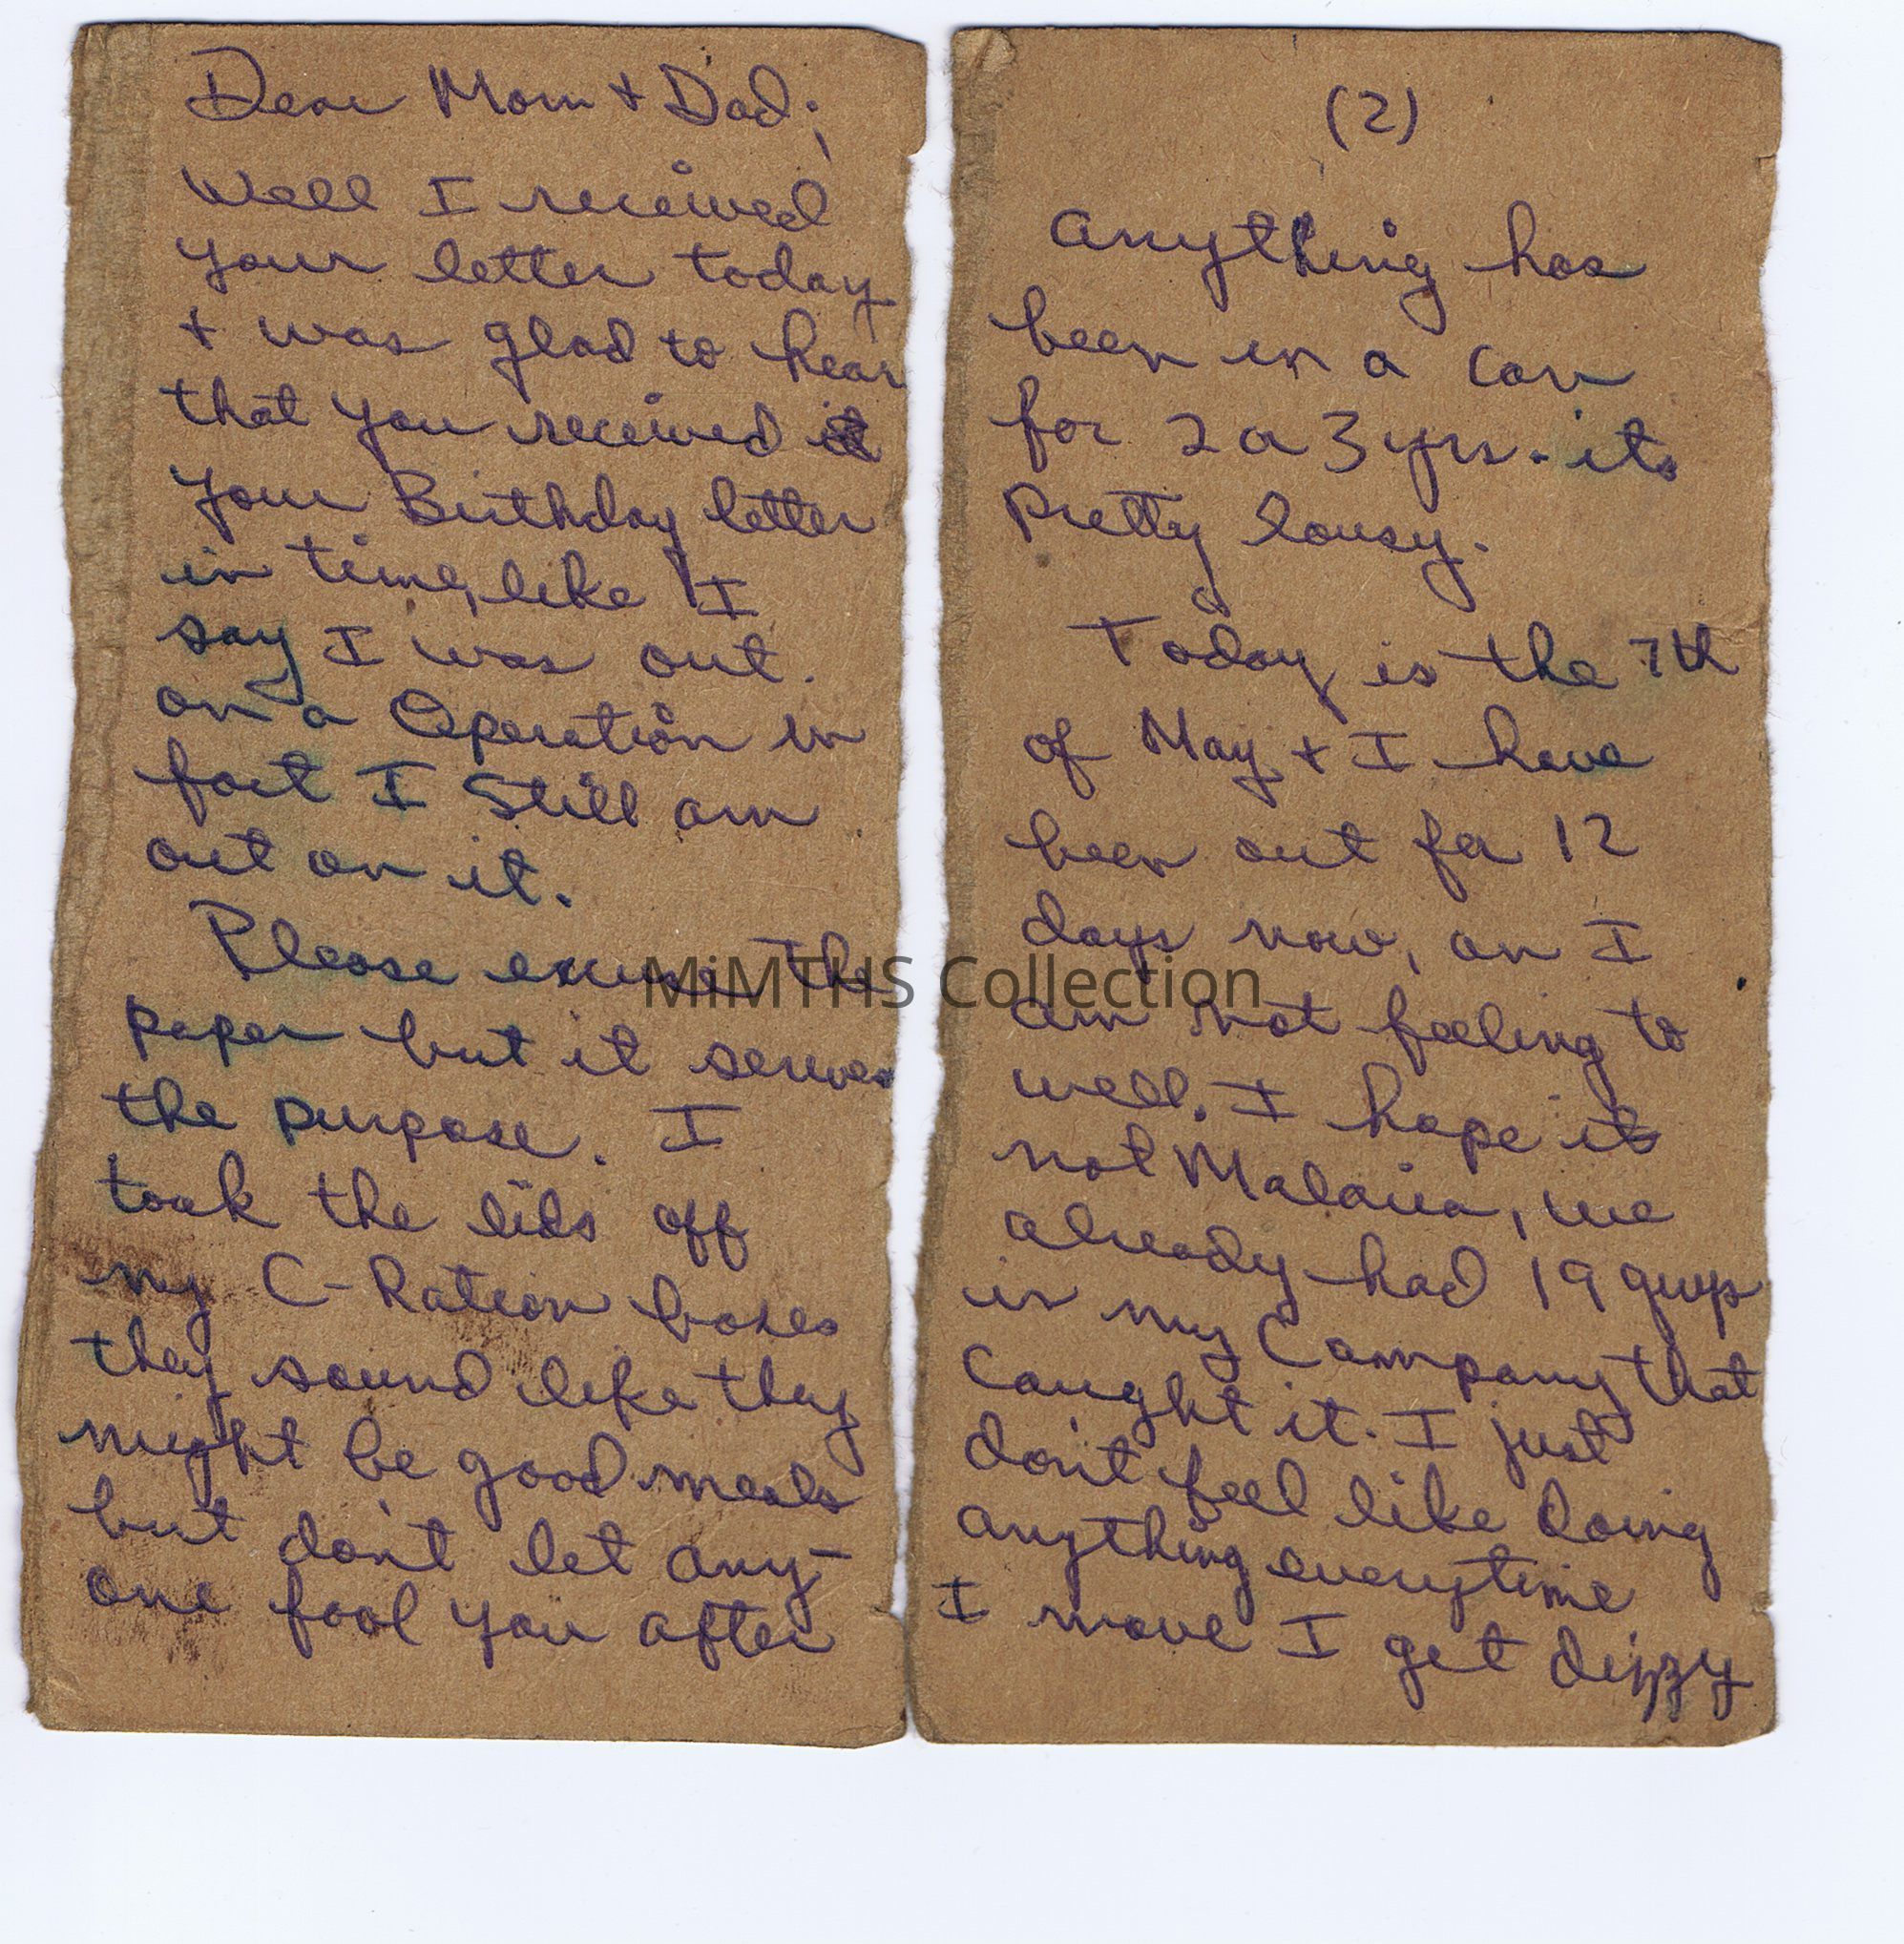 Dear Mom + Dad;
Well I received
your letter today
+ was glad to hear
that you received
your Birthday letter
in time, like I
say I was out.
on a Operation in
fact I Still am
out on it.
Please excuse the
paper but it serves
the purpose. I
took the lids off
my C-Ration boxes
they sound like they
might be good meals
but don't let any-
one fool you after
(2)
anything has
been in a can
for 2 or 3 yrs. its
pretty lousy.
Today is the 7th
of May + I have
been out for 12
days now, an I
am not feeling to
well. I hope its
not Malaria, we
already had 19 guys
in my Company that
caught it. I just
don't feel like doing
anything everytime
I move I get dizzy
MiMTHS Collection